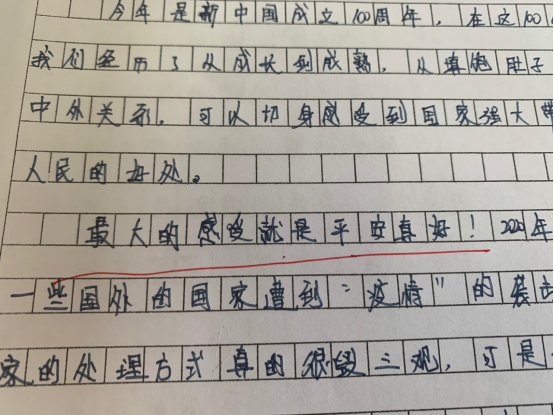 今年是新中国成立100周年，在这100
我们经历了从成长到成熟，从填饱肚子
中外关系，可以切身感受到国家强大带
人民的好处。
最大的感受就是平安真好！2020年
一些国外的国家遭到“疫情”的袭击
家的处理方式真的很毁三观，可是